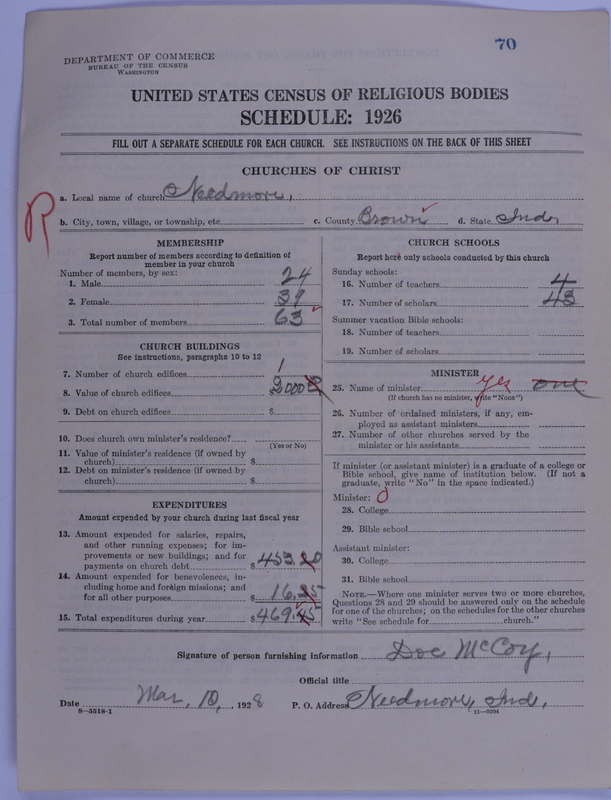 70
DEPARTMENT OF COMMERCE
BUREAU OF THE CENSUS
WASHINGTON
UNITED STATES CENSUS OF RELIGIOUS BODIES
SCHEDULE: 1926
FILL OUT A SEPARATE SCHEDULE FOR EACH CHURCH. SEE INSTRUCTIONS ON THE BACK OF THIS SHEET
CHURCHES OF CHRIST
R
a. Local name of church Needmore,
b. City, town, village, or township, etc. c. County Brown d. State Ind,
MEMBERSHIP
Report number of members according to definition of
member in your church
Number of members, by sex:
1. Male 24
2. Female 39
3. Total number of members 63
CHURCH BUILDINGS
See instructions, paragraphs 10 to 12
7. Number of church edifices 1
8. Value of church edifices $2000
9. Debt on church edifices $
10. Does church own minister's residence?
(Yes or No)
11. Value of minister's residence (if owned by
church) $
12. Debt on minister's residence (if owned by
church) $
EXPENDITURES
Amount expended by your church during last fiscal year
13. Amount expended for salaries, repairs,
and other running expenses; for im-
provements or new buildings; and for
payments on church debt $453.20
14. Amount expended for benevolences, in-
cluding home and foreign missions; and
for all other purposes $16.25
15. Total expenditures during year $469.45
CHURCH SCHOOLS
Report here only schools conducted by this church
Sunday schools:
16. Number of teachers 4
17. Number of scholars 43
Summer vacation Bible schools:
18. Number of teachers
19. Number of scholars
MINISTER
25. Name of minister yes one
(If church has no minister, write "None")
26. Number of ordained ministers, if any, em-
ployed as assistant ministers
27. Number of other churches served by the
minister or his assistants
If minister (or assistant minister) is a graduate of a college or
Bible school, give name of institution below. (If not a
graduate, write "No" in the space indicated.)
Minister: 0
28. College
29. Bible school
Assistant minister:
30. College
31. Bible school
NOTE.—Where one minister serves two or more churches,
Questions 28 and 29 should be answered only on the schedule
for one of the churches; on the schedules for the other churches
write "See schedule for church."
Signature of person furnishing information Doc McCoy,
Official title
Date Mar, 10, 1928 P. O. Address Needmore, Ind,
8—5518-1 11—9204